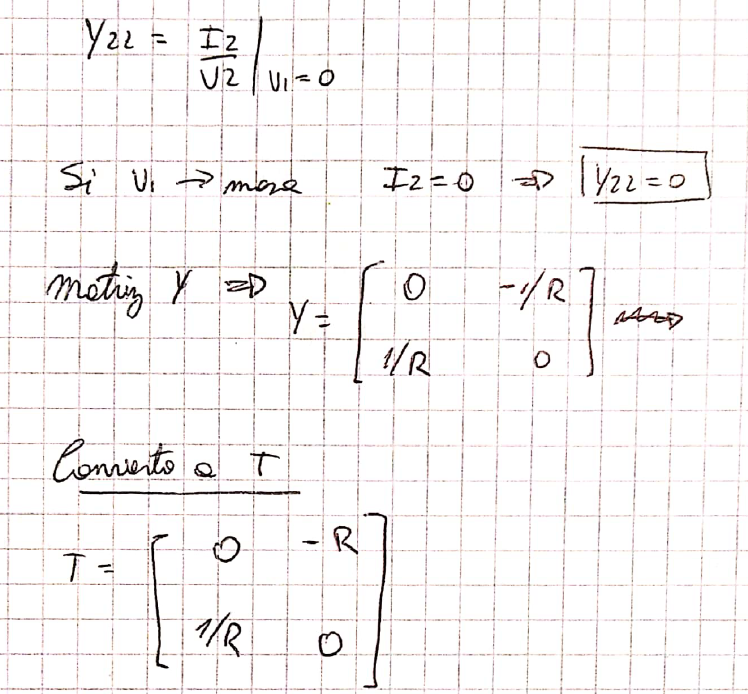 Y22 = I2/U2 | U1=0
Si U1 → masa I2=0 ⇒ Y22=0
matriz Y ⇒ Y = [ 0 -1/R
1/R 0 ]
Convierto a T
T = [ 0 -R
1/R 0 ]